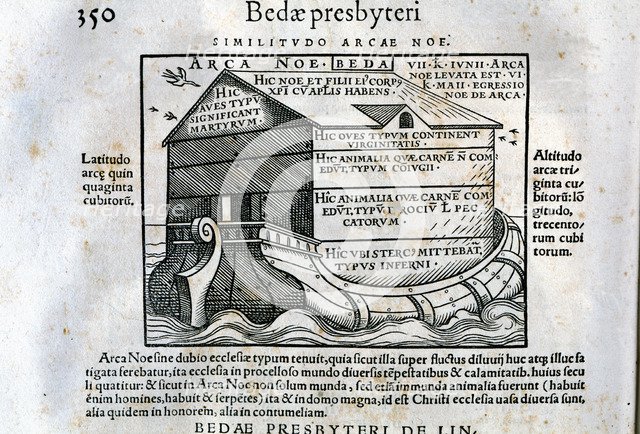 350
Bedæ presbyteri
SIMILITVDO ARCAE NOE.
ARCA NOE. BEDA
VII. K. IVNII. ARCA
NOE LEVATA EST. VI.
K. MAII. EGRESSIO
NOE DE ARCA.
HIC NOE ET FILII EI⁹ CORP⁹
XPI CV APLIS HABENS.
HIC
AVES TYPV
SIGNIFICANT
MARTYRVM.
HIC OVES TYPVM CONTINENT
VIRGINITATIS.
HIC ANIMALIA QVÆ CARNE N̄ COM
EDVT, TYPVM COIVGII.
HIC ANIMALIA QVÆ CARNE COM
EDVT, TYPV PEC
CATORVM.
HIC VBI STERC⁹ MITTEBAT̄,
TYPVS INFERNI.
Latitudo
arcę quin
quaginta
cubitorū.
Altitudo
arcæ tri-
ginta cu-
bitorū: lō
gitudo,
trecento-
rum cubi
torum.
Arca Noe sine dubio ecclesiæ typum tenuit, quia sicut illa super fluctus diluuij huc atq; illuc fa
tigata ferebatur, ita ecclesia in procelloso mundo diuersis tēpestatibus & calamitatib. huius secu
li quatitur: & sicut in Arca Noe non solum munda, sed etiā immunda animalia fuerunt (habuit
enim homines, habuit & serpētes) ita & in domo magna, id est Christi ecclesia uasa diuersa sunt,
alia quidem in honorem, alia in contumeliam.
BEDAE PRESBYTERI DE LIN-